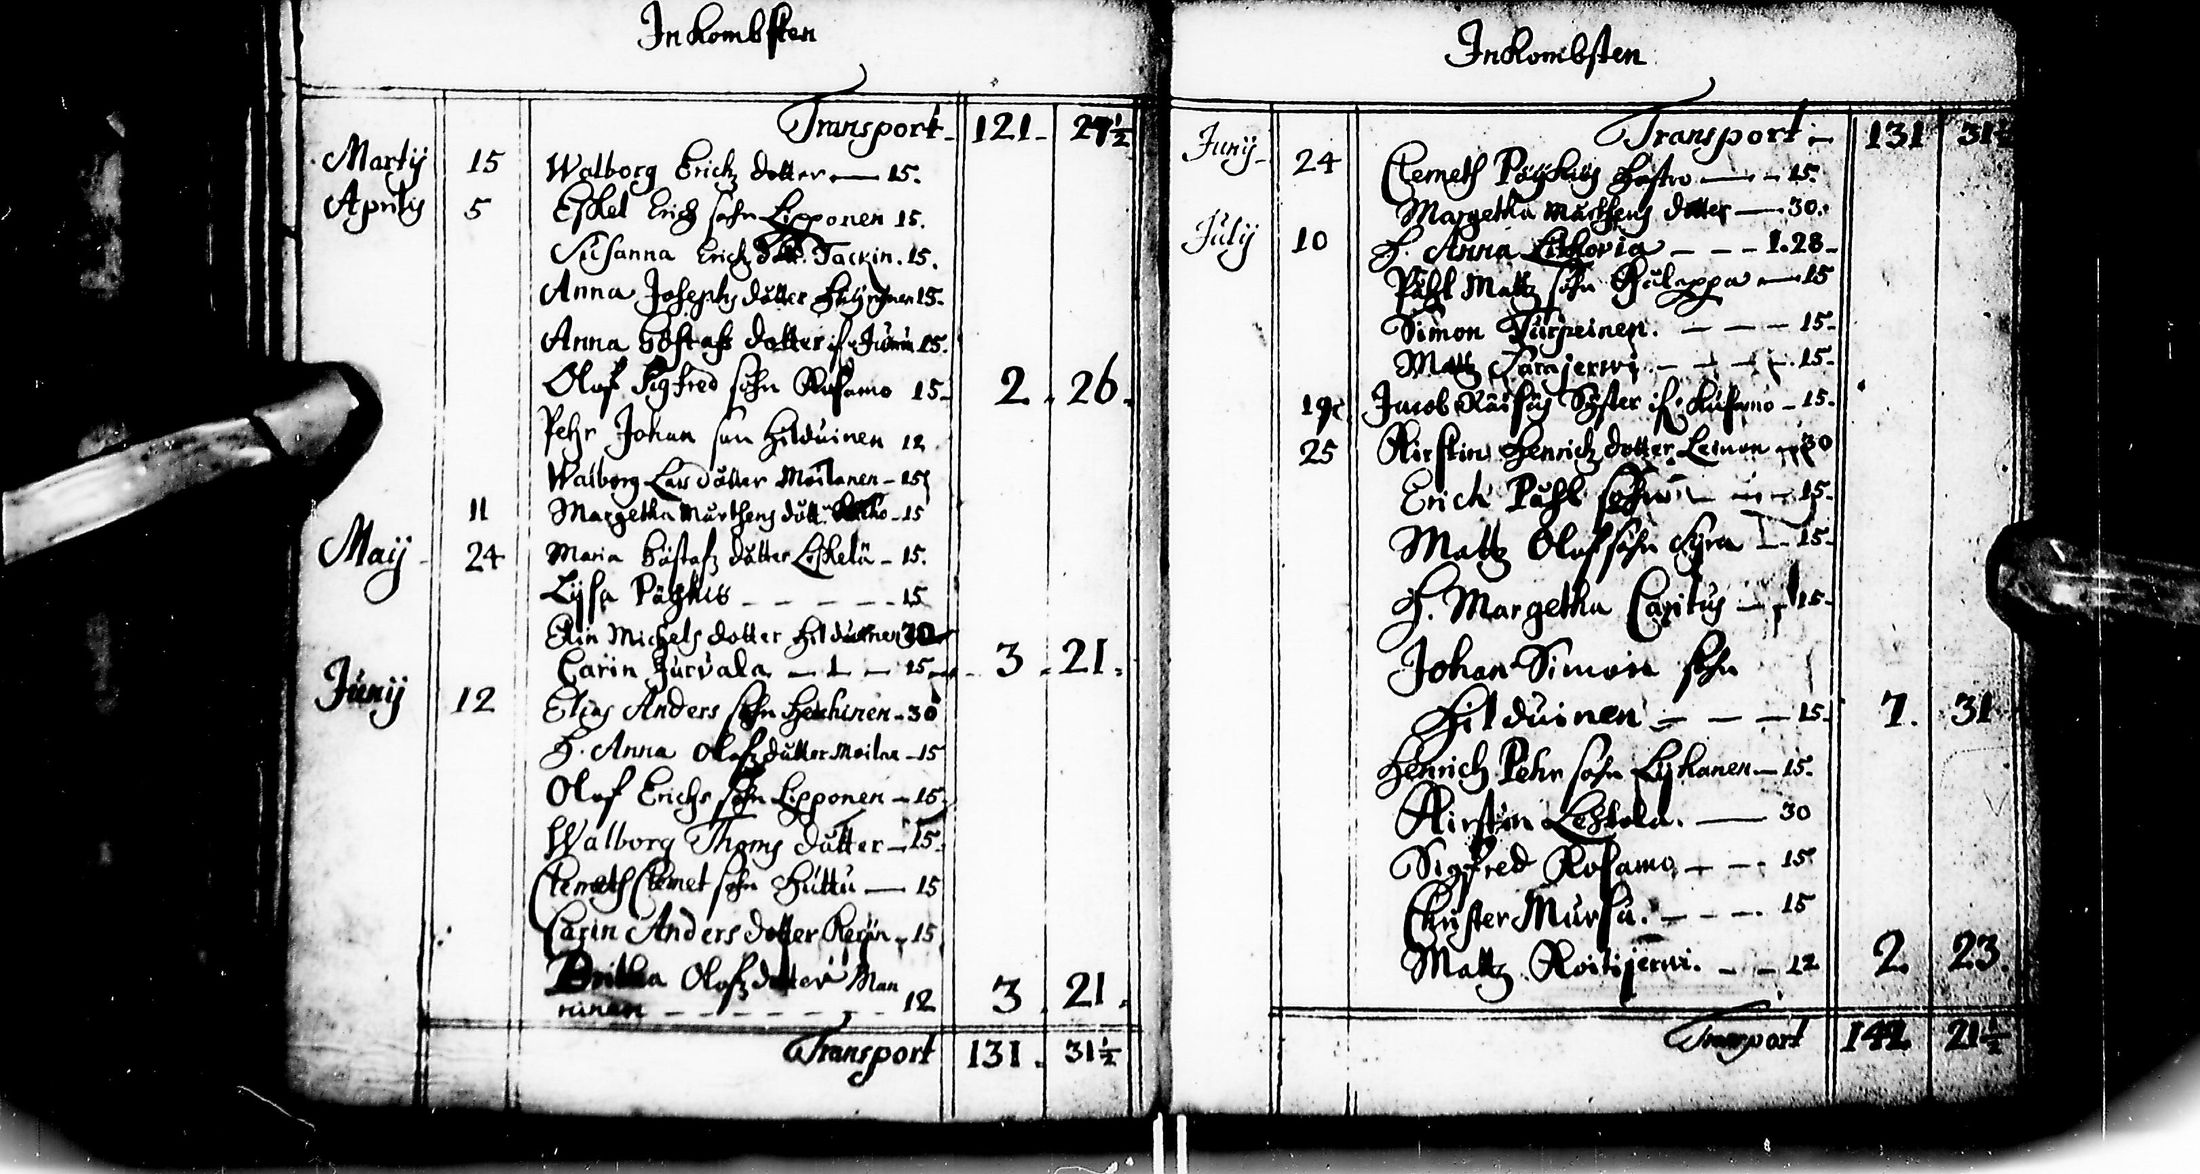 Inkombsten
Transport 121. 27½
Martij 15 Walborg Erichz dotter — 15.
Aprilis 5 Eskel Erich sohn Lipponen 15.
Susanna Erichz dott. Tackin. 15.
Anna Josephs dotter 15.
Anna Göstafs dotter 15.
Olof Sigfred sohn Kosamo 15. 2. 26.
Pehr Johan son Hilduinen 12
Walborg Lars dotter Moilanen – 15
11 Margetha Murthens dott. – 15
Maij 24 Maria Göstafz dotter Leskelä – 15.
Lijsa Pätzkus – – – – 15
Elin Michels dotter Hilduinen 30
Carin Jurvala – – – 15 3. 21.
Junij 12 Elias Anders sohn Heichinen – 30
H. Anna Olofz dutter Moilan – 15
Olof Erichs sohn Lipponen – 15.
Walborg Thoms dotter – 15.
Clemeth Clemet sohn Huttu — 15
Carin Anders dotter – 15
Britha Olofz dotter Man
ninen – – – – – – 12 3. 21.
Transport 131. 31½
Inkombsten
Transport – 131 31½
Junij 24 Clemeth hustro — – 15.
Margetha Murthens dotter — 30.
Julij 10 H. Anna – – – 1.28.
Påhl Mattz sohn — 15
Simon Turpeinen. – – – 15.
Mattz Särajerwi – – – 15.
19 Jacob Syster – 15.
25 Kirstin Henrichz dotter Leinon 30
Erich Påhl sohn – – – 15.
Mattz Olof sohn – 15.
H. Margetha Caritus – 15.
Johan Simon sohn
Hilduinen – – – 15. 7. 31
Henrich Pehr sohn Lykanen – 15.
Kirstin Lehtola. — 30
Sigfred Kosamo – – 15
Christer Mursu. – – – 15
Mattz Koitijerwi. – – 12 2. 23.
Transport 142. 21½